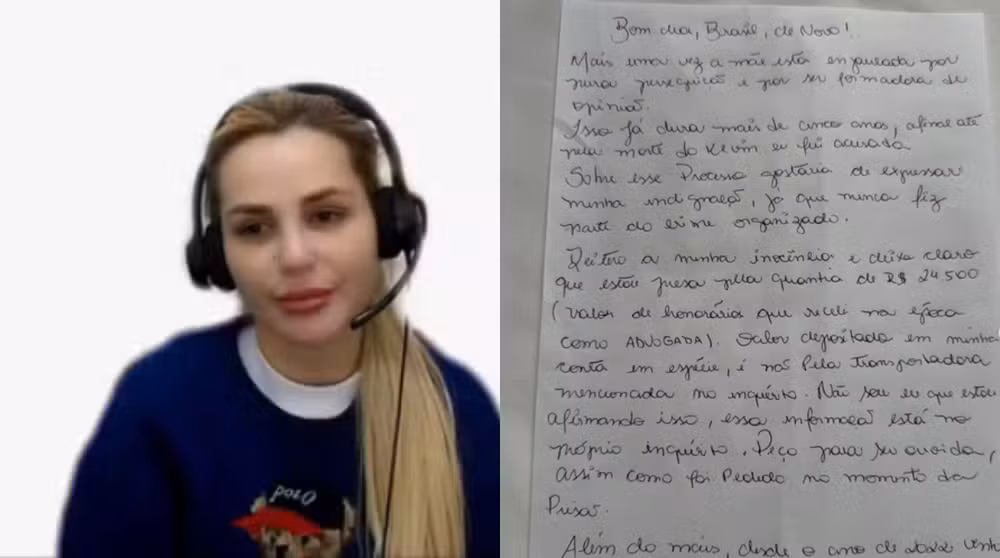 POLO
Bom dia, Brasil, de Novo!
Mais uma vez a mãe está enjaulada por
pura perseguição e por ser formadora de
opinião.
Isso já dura mais de cinco anos, afinal até
pela morte do Kevin eu fui acusada
Sobre esse Processo gostaria de expressar
minha indignação, já que nunca fiz
parte do crime organizado.
Reitero a minha inocência e deixo claro
que estou presa pela quantia de R$ 24.500
(valor de honorários que recebi na época
como ADVOGADA). Valor depositado em minha
conta em espécie, e não Pela Transportadora
mencionada no inquérito. Não sou eu que estou
afirmando isso, essa informação está no
próprio inquérito. Peço para ser ouvida,
assim como foi Pedido no momento da
Prisão.
Além do mais, desde o ano de